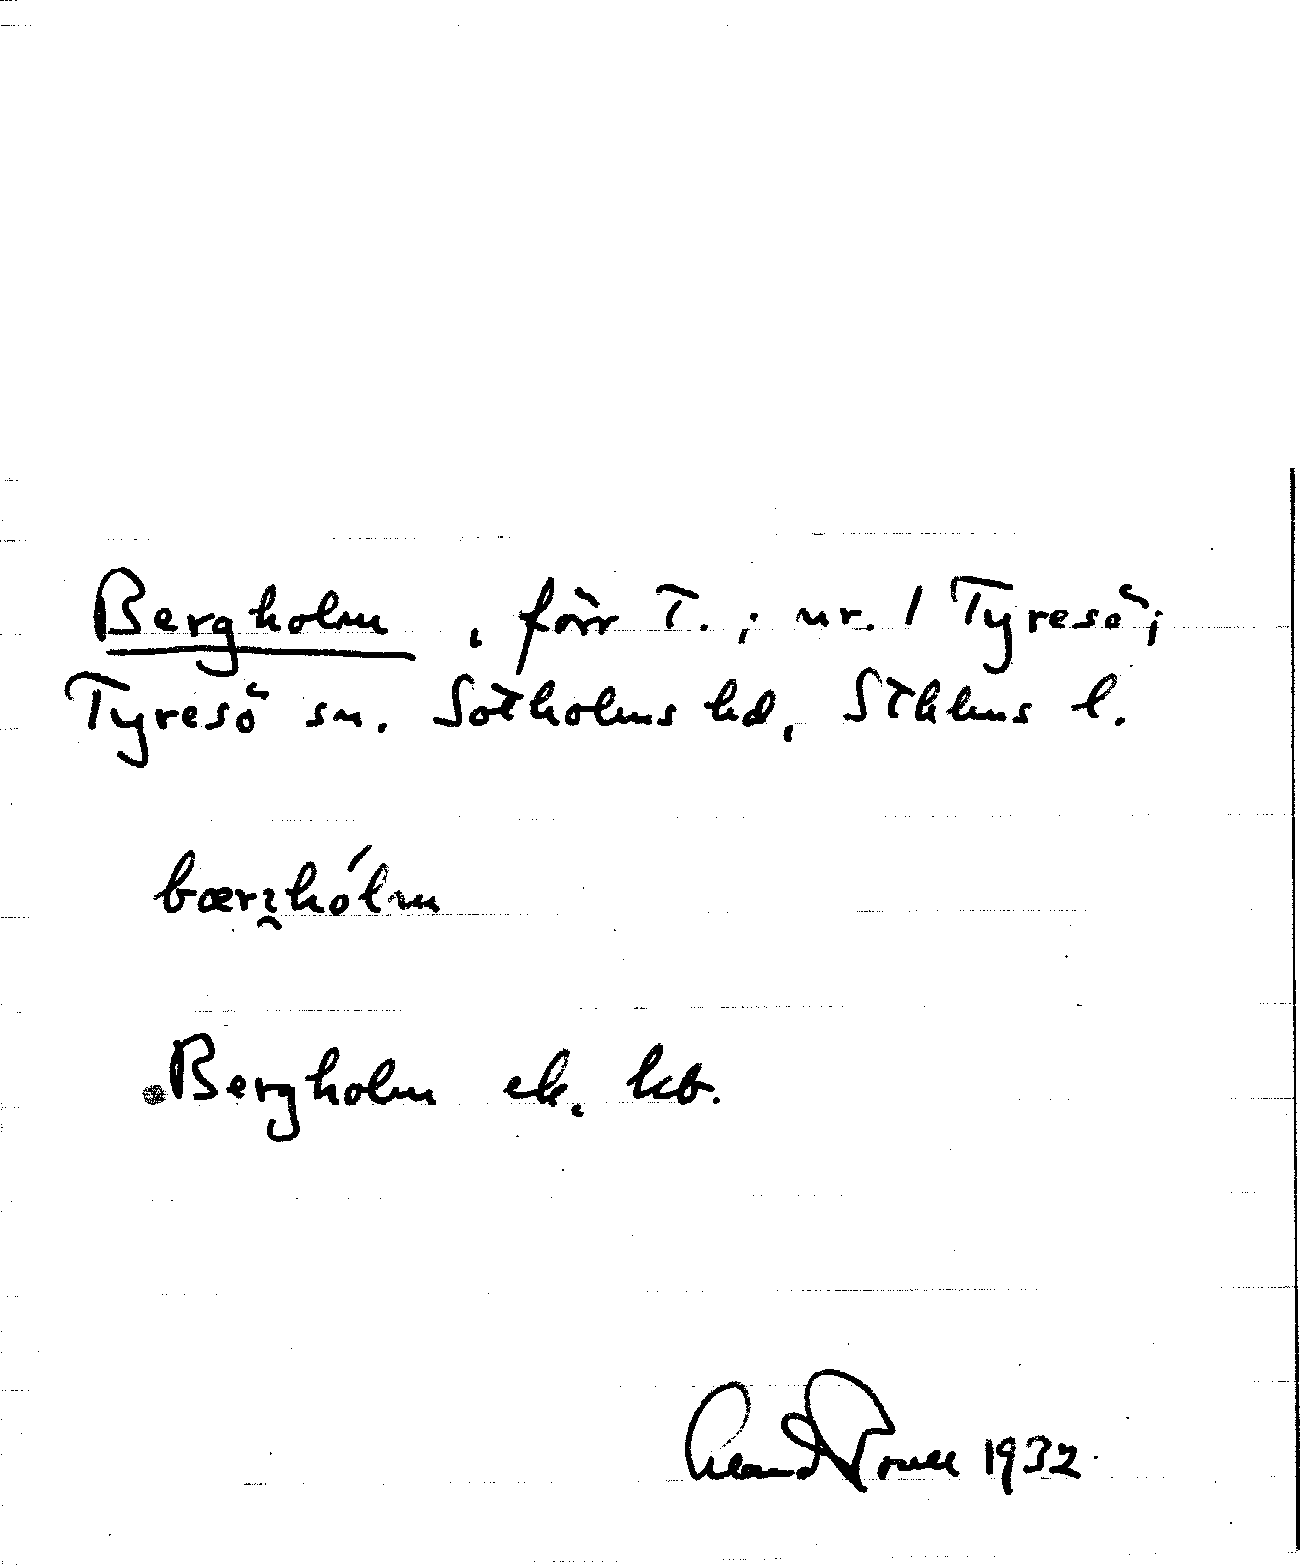 Bergholm, förr T.; nr. 1 Tyresö;
Tyresö sn. Sotholms hd, Sthlms l.
bærꝛhólm
Bergholm ek. kb.
1932